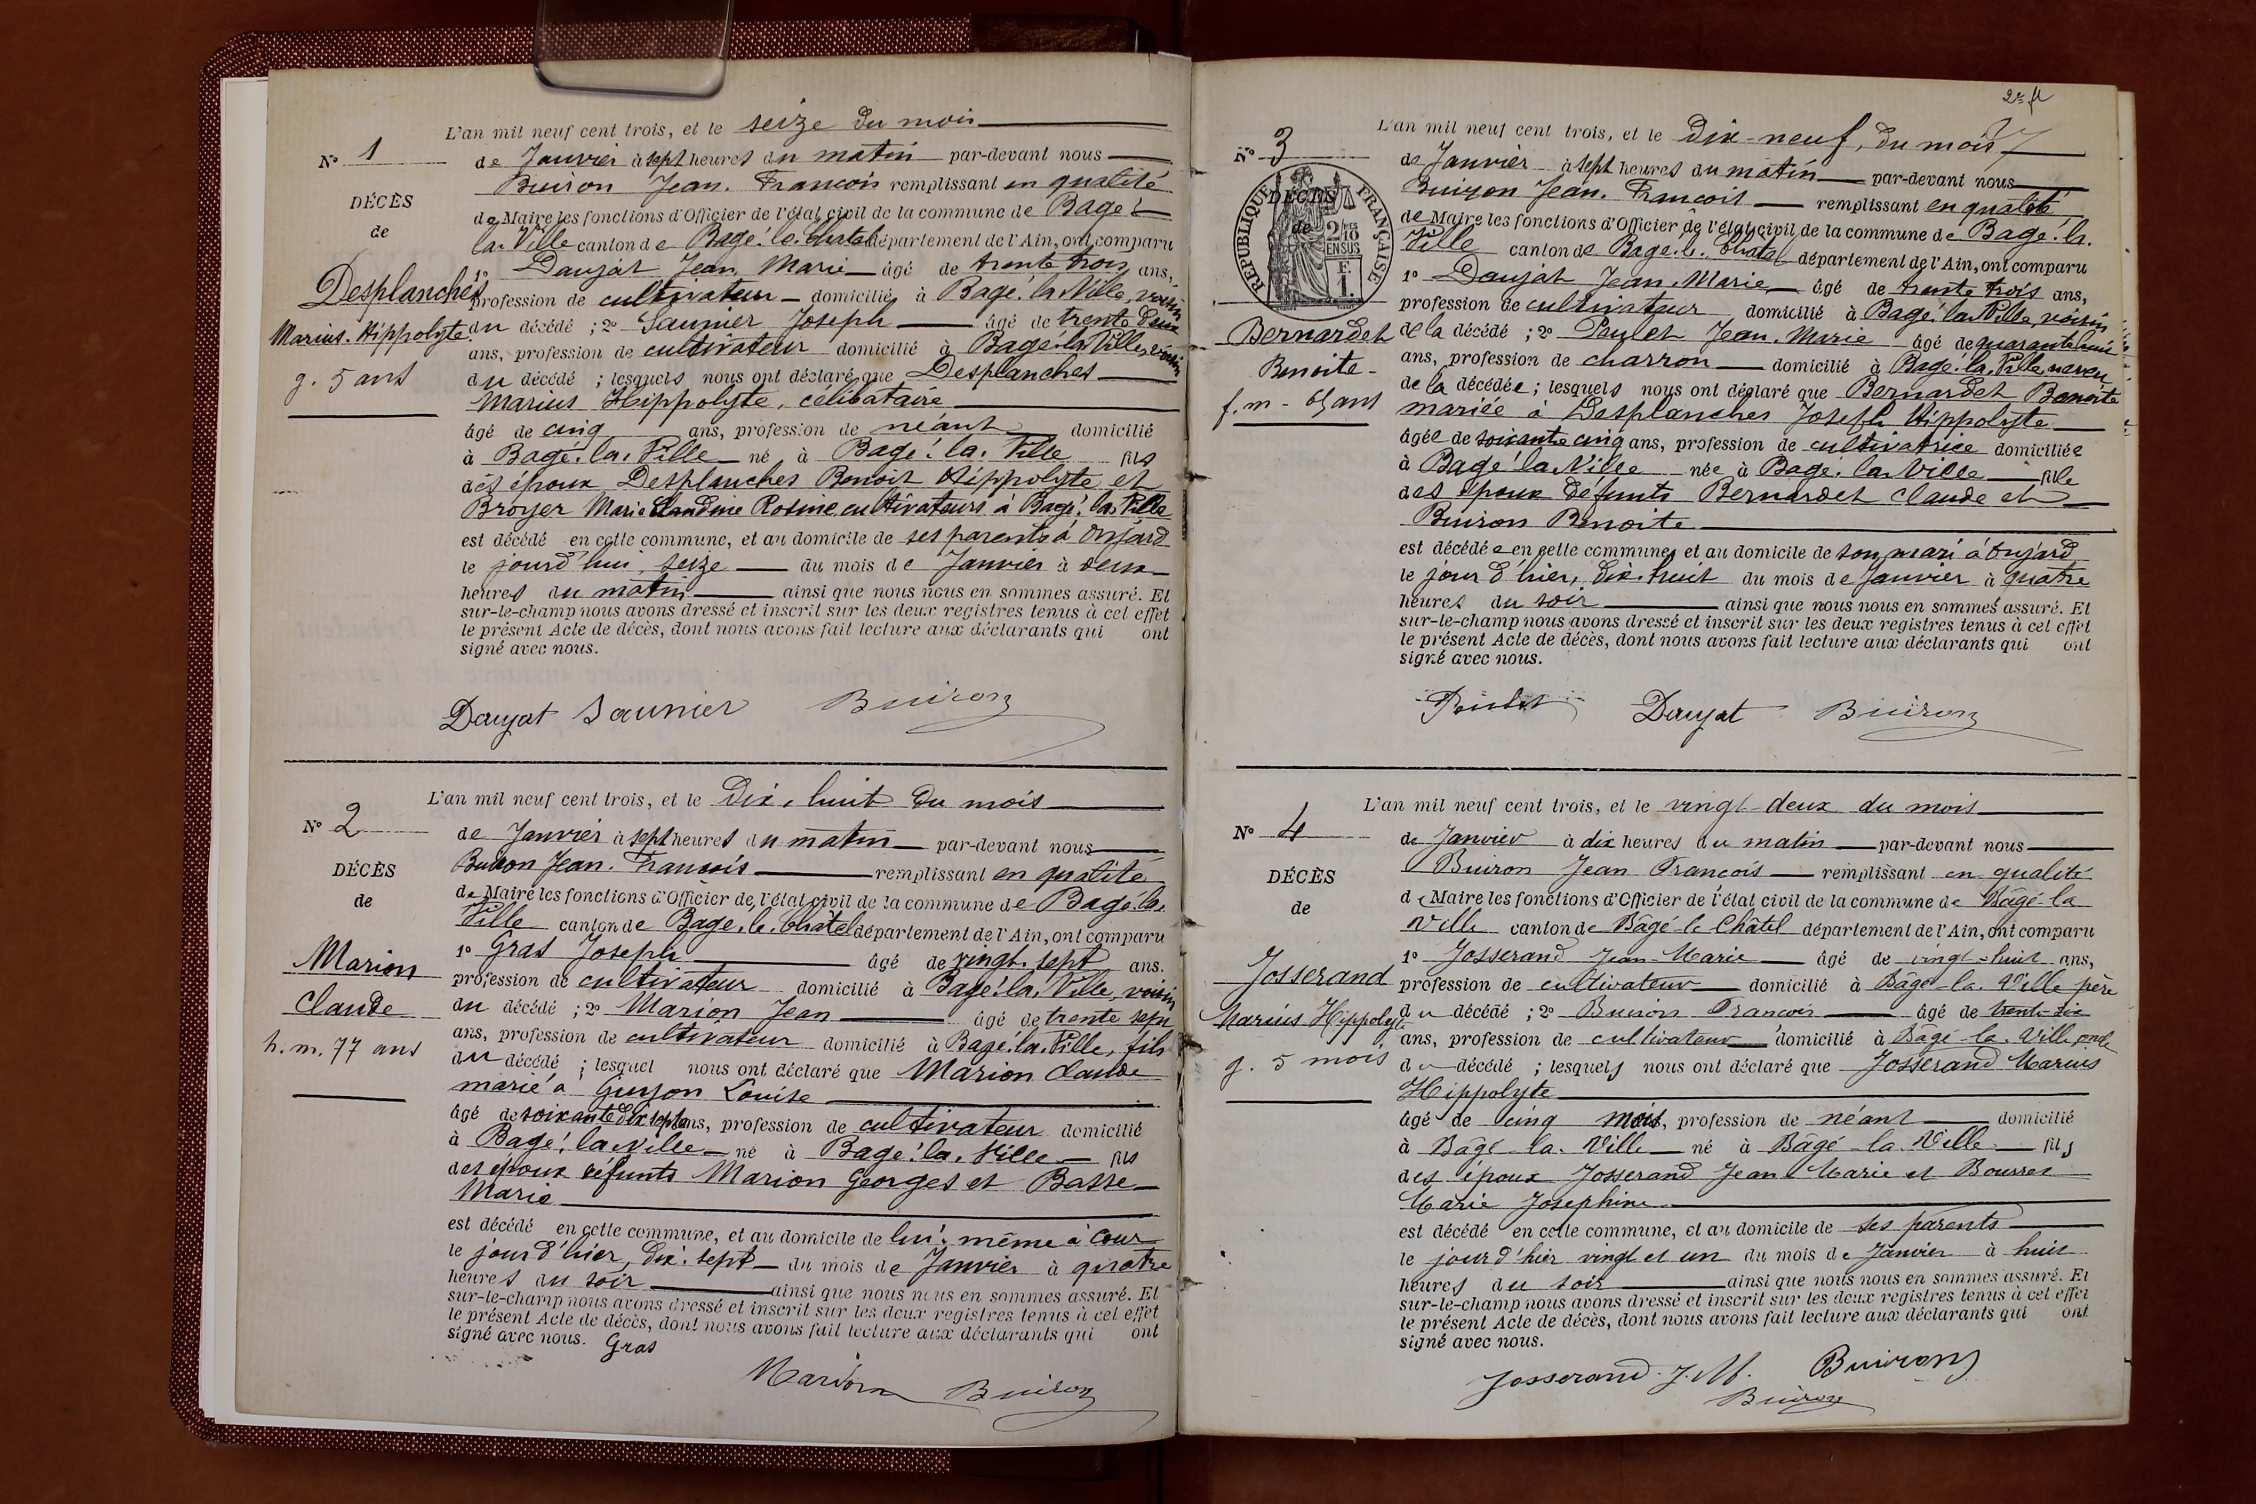 L'an mil neuf cent trois, et le seize du mois
N° 1
de Janvier à sept heures du matin par-devant nous
Buiron Jean. Francois remplissant en qualité
DÉCÈS
de Maire les fonctions d'Officier de l'état civil de la commune de Bagé
de
la. Ville canton de Bagé. le. Chatel département de l'Ain, ont comparu
1° Daujat Jean Marie âgé de trente trois ans,
Desplanches
profession de cultivateur domicilié à Bagé. la. Ville, voisin
Marius. Hippolyte
du décédé ; 2° Saunier Joseph âgé de trente deux
ans, profession de cultivateur domicilié à Bagé. la Ville, voisin
g. 5 ans
du décédé ; lesquels nous ont déclaré que Desplanches
Marius Hippolyte, célibataire
âgé de cinq ans, profession de néant domicilié
à Bagé. la. Ville né à Bagé. la. Ville fils
des époux Desplanches Benoit Hippolyte et
Broyer Marie Claudine Rosine cultivateurs à Bagé. la. Ville
est décédé en cette commune, et au domicile de ses parents à Onjard
le jourd'hui, seize du mois de Janvier à deux
heures du matin ainsi que nous nous en sommes assuré. Et
sur-le-champ nous avons dressé et inscrit sur les deux registres tenus à cet effet
le présent Acte de décès, dont nous avons fait lecture aux déclarants qui ont
signé avec nous.
Daujat Saunier Buiron
L'an mil neuf cent trois, et le Dix. huit du mois
N° 2
de Janvier à sept heures du matin par-devant nous
Buiron Jean. Francois remplissant en qualité
DÉCÈS
de Maire les fonctions d'Officier de l'état civil de la commune de Bagé. la.
de
Ville canton de Bagé. le. Châtel département de l'Ain, ont comparu
1° Gras Joseph âgé de vingt. sept ans.
Marion
profession de cultivateur domicilié à Bagé. la. Ville, voisin
Claude
du décédé ; 2° Marion Jean âgé de trente sept
ans, profession de cultivateur domicilié à Bagé. la. Ville, fils
h. m. 77 ans
du décédé ; lesquel nous ont déclaré que Marion Claude
marié à Guyon Louise
âgé de soixante dix sept ans, profession de cultivateur domicilié
à Bagé. la. Ville né à Bagé. la. Ville fils
des époux défunts Marion Georges et Basse
Marie
est décédé en cette commune, et au domicile de lui. même à Cour
le jour d'hier, Dix. sept du mois de Janvier à quatre
heures du soir ainsi que nous nous en sommes assuré. Et
sur-le-champ nous avons dressé et inscrit sur les deux registres tenus à cet effet
le présent Acte de décès, dont nous avons fait lecture aux déclarants qui ont
signé avec nous. Gras
Marion Buiron
L'an mil neuf cent trois, et le Dix-neuf, du mois
N° 3
de Janvier à sept heures du matin par-devant nous
Buiron Jean. Francois remplissant en qualité
DÉCÈS
de Maire les fonctions d'Officier de l'état civil de la commune de Bagé. la.
de
RÉPUBLIQUE FRANÇAISE
Ville canton de Bagé. le. Chatel département de l'Ain, ont comparu
1° Daujat Jean. Marie âgé de trente trois ans,
profession de cultivateur domicilié à Bagé. la. Ville, voisin
Bernardet
de la décédé ; 2° Paulet Jean. Marie âgé de quarante huit
ans, profession de charron domicilié à Bagé. la. Ville, neveu
Benoite
de la décédée ; lesquels nous ont déclaré que Bernardet Benoite
f. m - 65 ans
mariée à Desplanches Joseph Hippolyte
âgée de soixante cinq ans, profession de cultivatrice domiciliée
à Bagé. la. Ville née à Bagé. la Ville fille
des époux défunts Bernardet Claude et
Buiron Benoite
est décédée en cette commune, et au domicile de son mari à Onjard
le jour d'hier, Dix. huit du mois de Janvier à quatre
heures du soir ainsi que nous nous en sommes assuré. Et
sur-le-champ nous avons dressé et inscrit sur les deux registres tenus à cet effet
le présent Acte de décès, dont nous avons fait lecture aux déclarants qui ont
signé avec nous.
Daujat Buiron
L'an mil neuf cent trois, et le vingt-deux du mois
N° 4
de Janvier à dix heures du matin par-devant nous
Buiron Jean Francois remplissant en qualité
DÉCÈS
de Maire les fonctions d'Officier de l'état civil de la commune de Bâgé-la
de
Ville canton de Bâgé-le Châtel département de l'Ain, ont comparu
1° Josserand Jean-Marie âgé de vingt-huit ans,
Josserand
profession de cultivateur domicilié à Bâgé-la-Ville père
Marius Hippolyte
du décédé ; 2° Buiron Francois âgé de trente-six
ans, profession de cultivateur domicilié à Bâgé-la-Ville oncle
g. 5 mois
du décédé ; lesquels nous ont déclaré que Josserand Marius
Hippolyte
âgé de cinq mois, profession de néant domicilié
à Bâgé-la-Ville né à Bâgé-la-Ville fils
des époux Josserand Jean Marie et Bourret
Marie Josephine
est décédé en cette commune, et au domicile de ses parents
le jour d'hier vingt et un du mois de Janvier à huit
heures du soir ainsi que nous nous en sommes assuré. Et
sur-le-champ nous avons dressé et inscrit sur les deux registres tenus à cet effet
le présent Acte de décès, dont nous avons fait lecture aux déclarants qui ont
signé avec nous.
Josserand. J. M. Buiron
Buiron